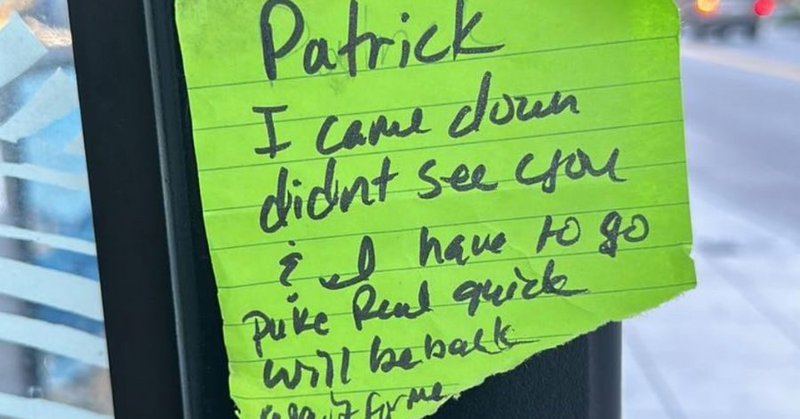 Patrick
I came down
didnt see you
& I have to go
puke Real quick
will be back
wait for me